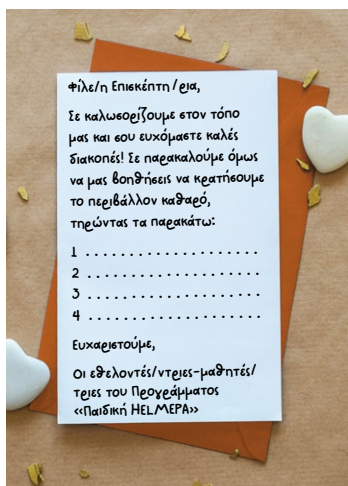 Φίλε/η Επισκέπτη/ρια,
Σε καλωσορίζουμε στον τόπο
μας και σου ευχόμαστε καλές
διακοπές! Σε παρακαλούμε όμως
να μας βοηθήσεις να κρατήσουμε
το περιβάλλον καθαρό,
τηρώντας τα παρακάτω:
1 . . . . . . . . . . . . . . . . . . . .
2 . . . . . . . . . . . . . . . . . . . .
3 . . . . . . . . . . . . . . . . . . . .
4 . . . . . . . . . . . . . . . . . . . .
Ευχαριστούμε,
Οι εθελοντές/ντριες-μαθητές/
τριες του Προγράμματος
<<Παιδική HELMEPA>>